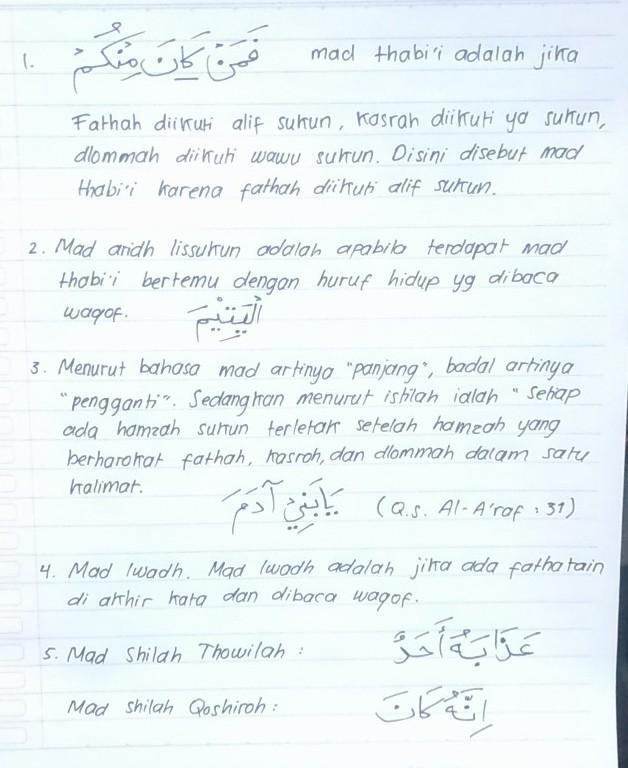 1. فَمَنْ كَانَ مِنْكُمْ mad thabi'i adalah jika
Fathah diikuti alif sukun, kasrah diikuti ya sukun,
dlommah diikuti wawu sukun. Disini disebut mad
thabi'i karena fathah diikuti alif sukun.
2. Mad aridh lissukun adalah apabila terdapat mad
thabi'i bertemu dengan huruf hidup yg dibaca
waqof. الْيَتِيْمَ
3. Menurut bahasa mad artinya "panjang", badal artinya
"pengganti". Sedangkan menurut istilah ialah "Setiap
ada hamzah sukun terletak setelah hamzah yang
berharokat fathah, kasroh, dan dlommah dalam satu
kalimat.
يَابَنِيْ آدَمَ (Q.s. Al-A'raf : 31)
4. Mad Iwadh. Mad Iwadh adalah jika ada fathatain
di akhir kata dan dibaca waqof.
5. Mad Shilah Thowilah : عَذَابَهُ أَحَدٌ
Mad shilah Qoshiroh : اِنَّهُ كَانَ